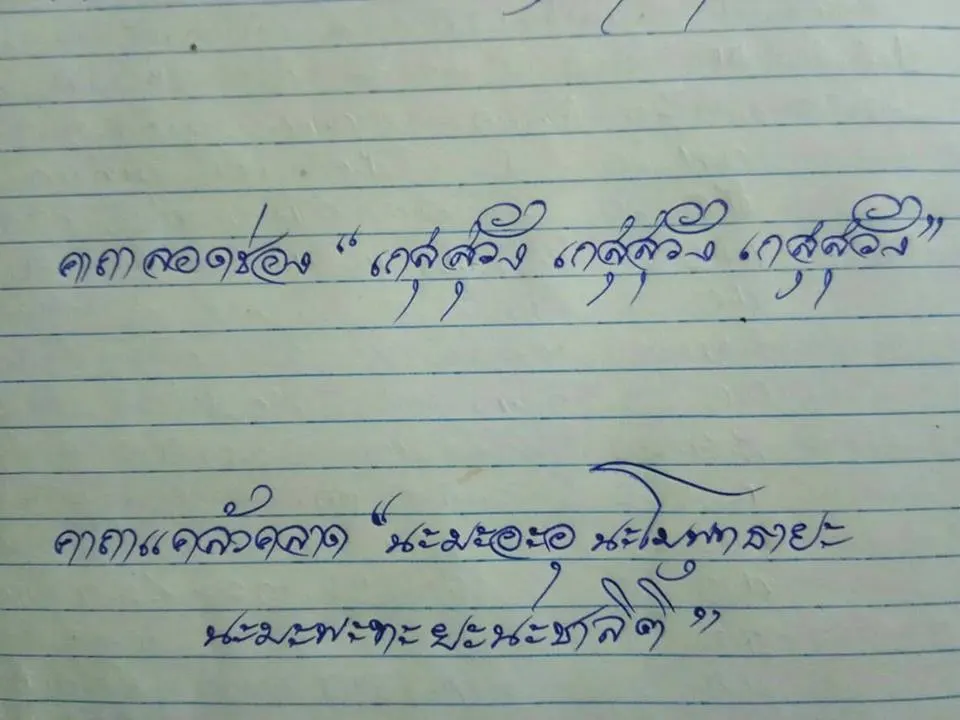 คาถาลอดช่อง “เกสุสุวัง เกสุสุวัง เกสุสุวัง”
คาถาแคล้วคลาด “นะมะอะอุ นะโมพุทธายะ
นะมะพะทะ ยะนะชาลิติ”